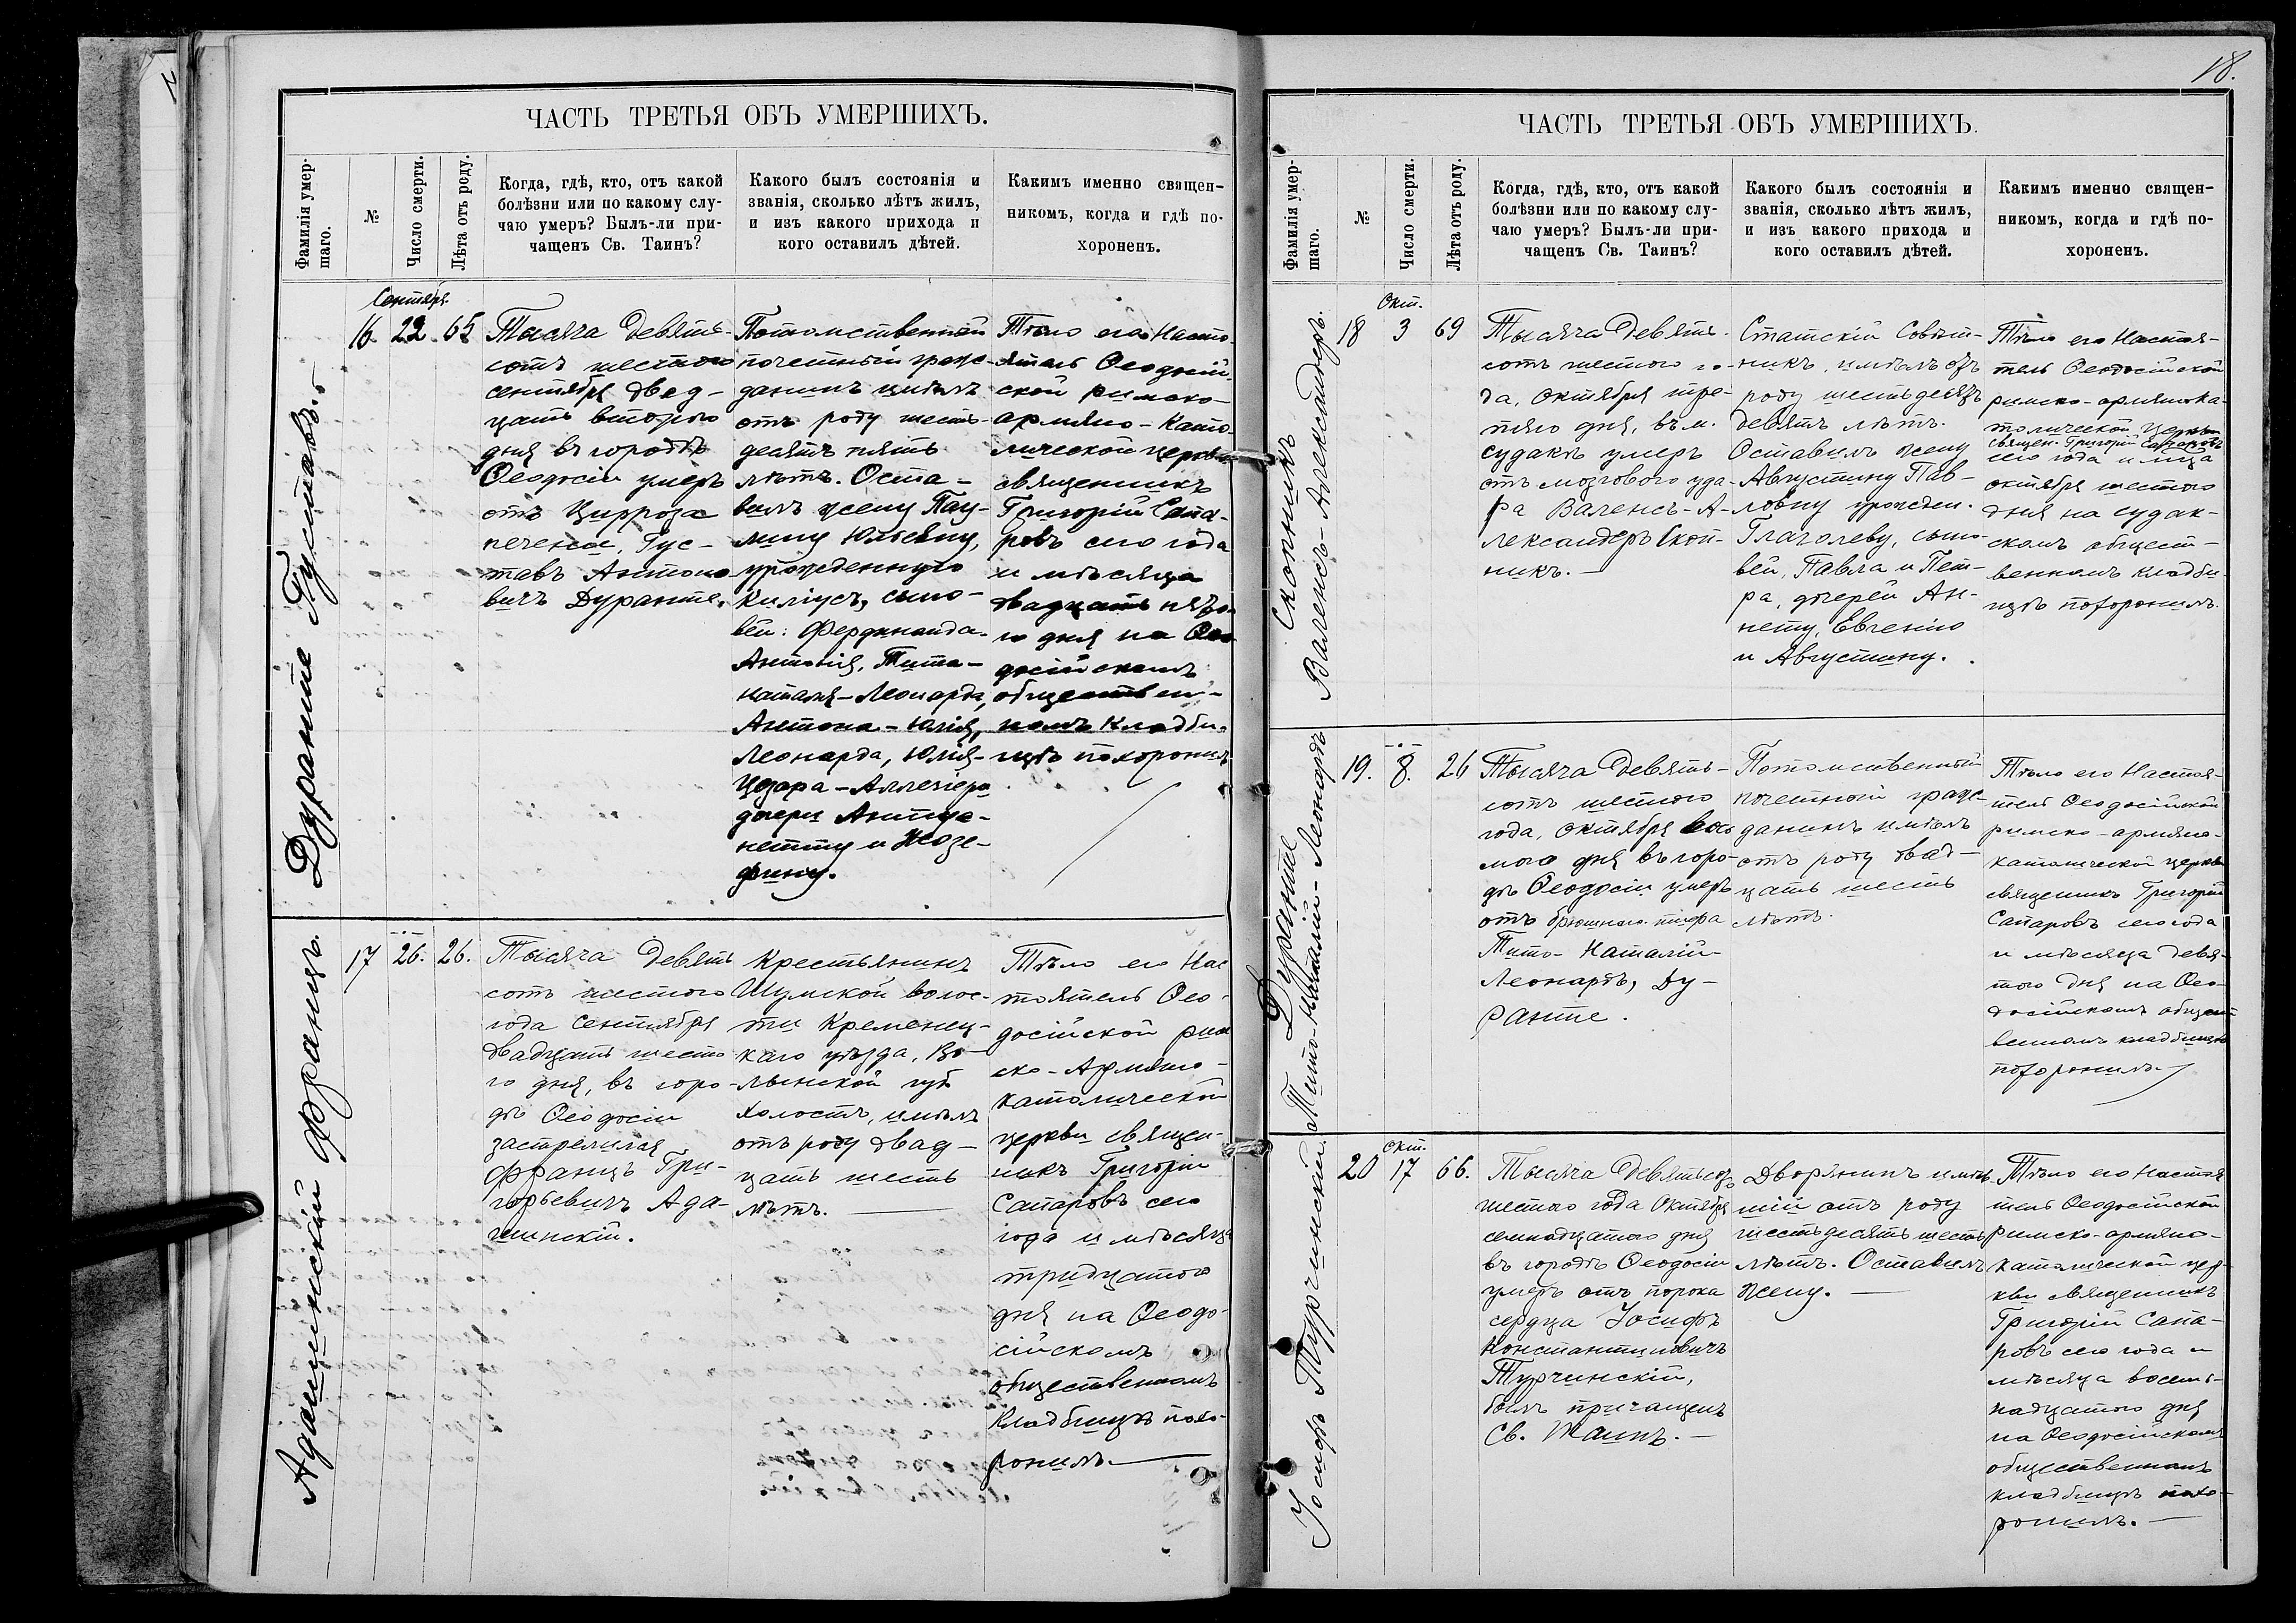 ЧАСТЬ ТРЕТЬЯ ОБЪ УМЕРШИХЪ.
Фамилія умер-
шаго.
№
Число смерти.
Лѣта отъ роду.
Когда, гдѣ, кто, отъ какой
болѣзни или по какому слу-
чаю умеръ? Былъ-ли при-
чащенъ Св. Таинъ?
Какого былъ состоянія и
званія, сколько лѣтъ жилъ,
и изъ какого прихода и
кого оставилъ дѣтей.
Какимъ именно священ-
никомъ, когда и гдѣ по-
хороненъ.
Дуранте Густавъ.
Сентяб.
16. 22. 65
Тысяча девять-
сотъ шестого
сентября двад-
цать второго
дня въ городѣ
Ѳеодосіи умеръ
отъ Цирроза
печени, Гус-
тавъ Антоно
вичъ Дуранте.
Потомственный
почетный граж-
данинъ имѣлъ
отъ роду шесть-
десятъ пять
лѣтъ. Оста-
вилъ жену Пау-
лину Юліевну,
урожденную
Киліусъ, сыно-
вей: Фердинанда-
Антонія, Тита-
Наталя-Леонарда,
Антона-Юлія,
Леонарда, Юлія-
Цезара-Аллегіери
дочери Антуа-
нетту и Жозе-
фину.
Тѣло его Насто-
ятель Ѳеодосій-
ской римско-
армяно-Като-
лической церкви
священникъ
Григорій Сапа-
ровъ сего года
и мѣсяца
двадцать пято-
го дня на Ѳео
досійскомъ
обществен-
номъ кладби-
щѣ похоронилъ
Адашинскій Францъ.
17 26. 26.
Тысяча девять
сотъ шестого
года Сентября
двадцать шесто
го дня, въ горо-
дѣ Ѳеодосіи
застрѣлился
Францъ Гри-
горьевичъ Ада-
шинскій.
Крестьянинъ
Шумской волос-
ти Кременец-
каго уѣзда, Во-
лынской губ
холостъ, имѣлъ
отъ роду двад-
цать шесть
лѣтъ.
Тѣло его Нас
тоятель Ѳео-
досійской рим
ско-Армяно-
католической
церкви священ-
никъ Григорій
Сапаровъ сего
года и мѣсяца
тридцатого
дня на Ѳеодо-
сійскомъ
общественномъ
кладбищѣ похо-
ронилъ.
18.
ЧАСТЬ ТРЕТЬЯ ОБЪ УМЕРШИХЪ.
Фамилія умер-
шаго.
№
Число смерти.
Лѣта отъ роду.
Когда, гдѣ, кто, отъ какой
болѣзни или по какому слу-
чаю умеръ? Былъ-ли при-
чащенъ Св. Таинъ?
Какого былъ состоянія и
званія, сколько лѣтъ жилъ,
и изъ какого прихода и
кого оставилъ дѣтей.
Какимъ именно священ-
никомъ, когда и гдѣ по-
хороненъ.
Скопникъ
Валенсъ-Александеръ.
Окт.
18 3 69
Тысяча девять-
сотъ шестого го-
да, октября тре-
тяго дня, въ м.
судакѣ умеръ
отъ мозгового уда-
ра Валенсъ-А-
лександеръ Скоп-
никъ.
Статскій Совѣт-
никъ, имѣлъ отъ
роду шестьдесятъ
девять лѣтъ.
Оставилъ жену
Августину Пав-
ловну урожден.
Глаголеву, сыно-
вей, Павла и Пет-
ра, дочерей Ан-
нету, Евгенію
и Августину.
Тѣло его Настоя-
тель Ѳеодосійской
римско-армянока-
толической церкви
священ. Григорій Сапаровъ
сего года и м-ца
октября шестого
дня на судак-
скомъ общест-
венномъ кладби-
щѣ похоронилъ.
Дуранте
Тито-Наталій-Леонардъ
19. 8. 26
Тысяча девять-
сотъ шестого
года, октября вось
мого дня въ горо-
дѣ Ѳеодосіи умеръ
отъ брюшного тифа
Тито-Наталій-
Леонардъ, Ду-
ранте.
Потомственный
почетный граж-
данинъ имѣлъ
отъ роду двад-
цать шесть
лѣтъ.
Тѣло его Настоя-
тель Ѳеодосійской
римско-армяно-
католической церкви
священникъ Григорій
Сапаровъ сего года
и мѣсяца девя-
того дня на Ѳео-
досійскомъ общест
венномъ кладбищѣ
похоронилъ.
Іосифъ Турчинскій.
Окт.
20 17 66.
Тысяча девятьсотъ
шестого года Октября
семнадцатого дня
въ городѣ Ѳеодосіи
умеръ отъ порока
сердца Іосифъ
Константиновичъ
Турчинскій,
былъ причащенъ
Св. Таинъ.
Дворянинъ имѣв
шій отъ роду
шестьдесятъ шесть
лѣтъ. Оставилъ
жену.
Тѣло его Настоя
тель Ѳеодосійской
Римско-армяно-
католической цер-
кви священникъ
Григорій Сапа-
ровъ сего года и
мѣсяца восемь-
надцатого дня
на Ѳеодосійскомъ
общественномъ
кладбищѣ похо-
ронилъ.